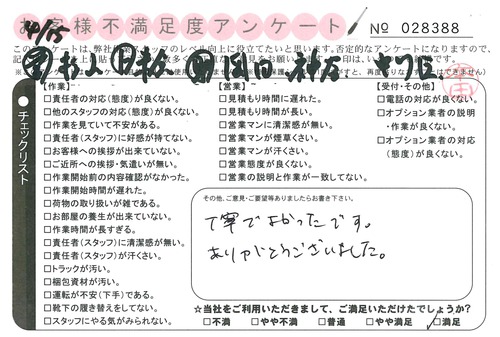 お客様不満足度アンケート
№ 028388
4/15
【作業】
□責任者の対応（態度）が良くない。
□他のスタッフの対応（態度）が良くない。
□作業を見ていて不安がある。
□責任者（スタッフ）に好感が持てない。
□お客様への挨拶が出来ていない。
□ご近所への挨拶・気遣いが無い。
□作業開始前の内容確認がなかった。
□作業開始時間が遅れた。
□荷物の取り扱いが雑である。
□お部屋の養生が出来ていない。
□作業時間が長すぎる。
□責任者（スタッフ）に清潔感が無い。
□責任者（スタッフ）が汗くさい。
□トラックが汚い。
□梱包資材が汚い。
□運転が不安（下手）である。
□靴下の履き替えをしてない。
□スタッフにやる気がみられない。
【営業】
□見積もり時間に遅れた。
□見積もり時間が長い。
□営業マンに清潔感が無い。
□営業マンが煙草くさい。
□営業マンが汗くさい。
□営業態度が良くない。
□営業の説明と作業が一致してない。
【受付・その他】
□電話の対応が良くない。
□オプション業者の説明
・作業が良くない。
□オプション業者の対応
（態度）が良くない。
●チェックリスト
その他、ご意見・ご要望等ありましたらお書き下さい。
丁寧でよかったです。
ありがとうございました。
☆当社をご利用いただきまして、ご満足いただけたでしょうか?
□不満 □やや不満 □普通 □やや満足 □満足